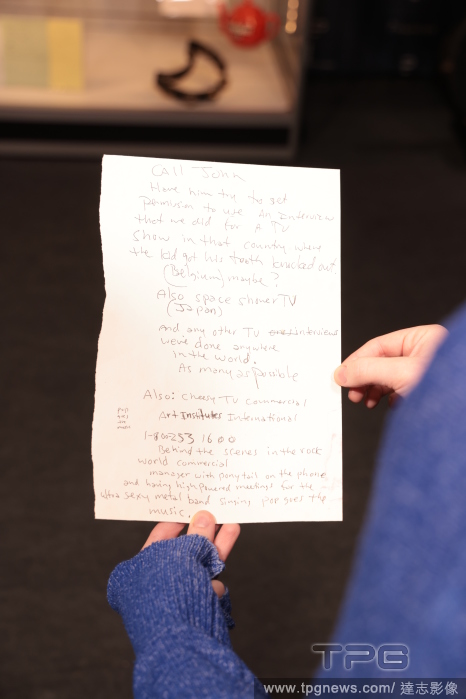 Call John
Have him try to get
permission to use An Interview
that we did for A TV
show in that country where
the kid got his tooth knocked out.
(Belgium) maybe?
Also space shower TV
(Japan)
And any other TV interviews
weve done anywhere
in the world.
As many as possible
Also: cheesy TV commercial
Art Institutes International
1-800 253 1600
Behind the scenes in the rock
world commercial
manager with pony tail on the phone
and having high powered meetings for the
ultra sexy metal band singing pop goes the
music.
TPG
www.tpgnews.com/達志影像